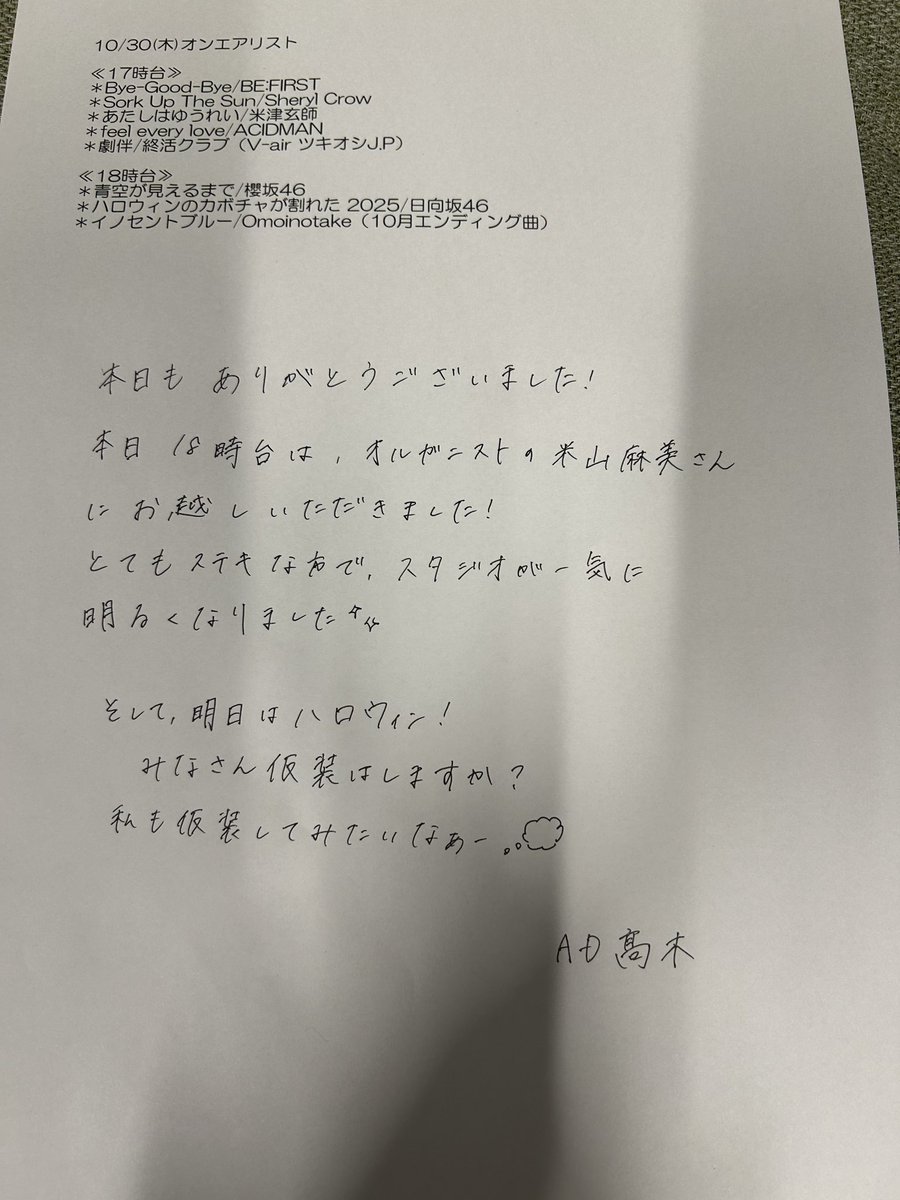 10/30(木)オンエアリスト
≪17時台≫
＊Bye-Good-Bye/BE:FIRST
＊Sork Up The Sun/Sheryl Crow
＊あたしはゆうれい/米津玄師
＊feel every love/ACIDMAN
＊劇伴/終活クラブ（V-air ツキオシJ.P）
≪18時台≫
＊青空が見えるまで/櫻坂46
＊ハロウィンのカボチャが割れた 2025/日向坂46
＊イノセントブルー/Omoinotake（10月エンディング曲）
本日も ありがとうございました!
本日 18時台は、オルガニストの米山麻美さん
に お越しいただきました!
とてもステキな方で、スタジオが一気に
明るくなりました
そして、明日はハロウィン!
みなさん仮装はしますか?
私も仮装してみたいなぁー
AD髙木